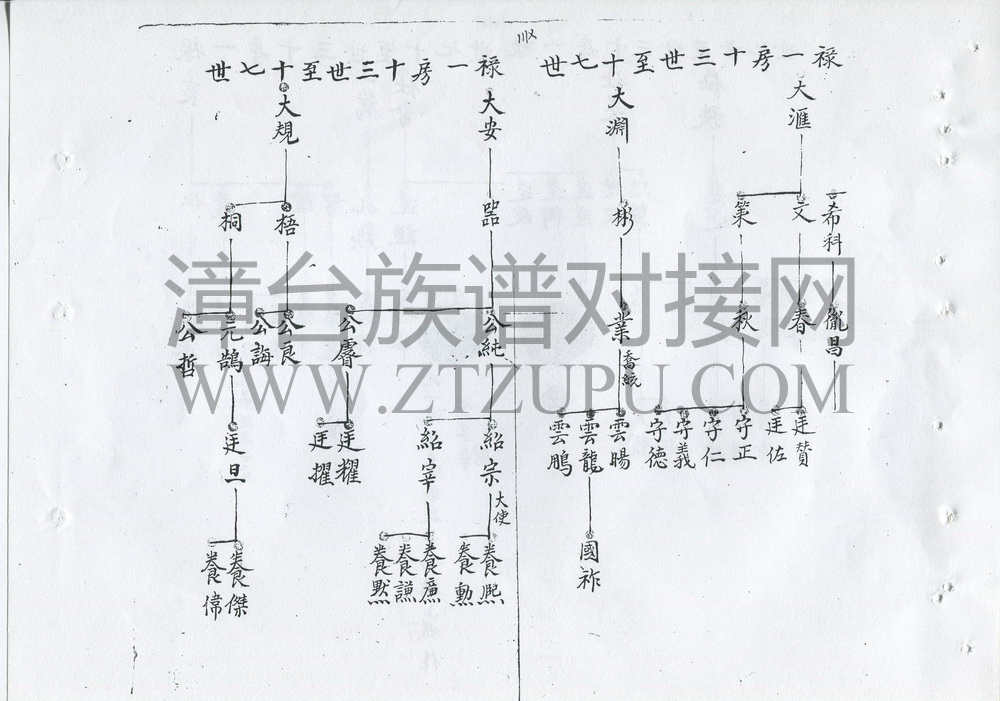 祿一房十三世至十七世
大滙
文
策
希科
春
秋
胤昌
廷賛
廷佐
守正
守仁
守義
守德
大淵
彬
業
喬統
雲暘
雲龍
雲鵬
國祚
祿一房十三世至十七世
大安
噐
公純
公睿
紹宗
大使
紹宰
廷耀
廷擢
養熈
養勳
養廉
養謙
養默
大規
梧
桐
公良
公誨
元鵠
公哲
廷旦
養傑
養偉
漳台族谱对接网
WWW.ZTZUPU.COM